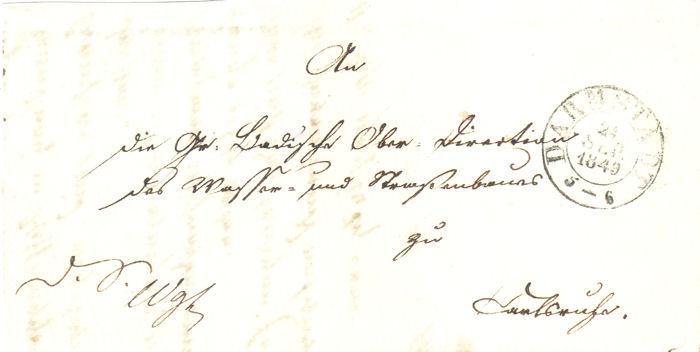 An
die Gr. Badische Ober-Direction
des Wasser- und Straßenbaues
zu
Carlsruhe.
D. S.
DARMSTADT
24
1849
5 - 6